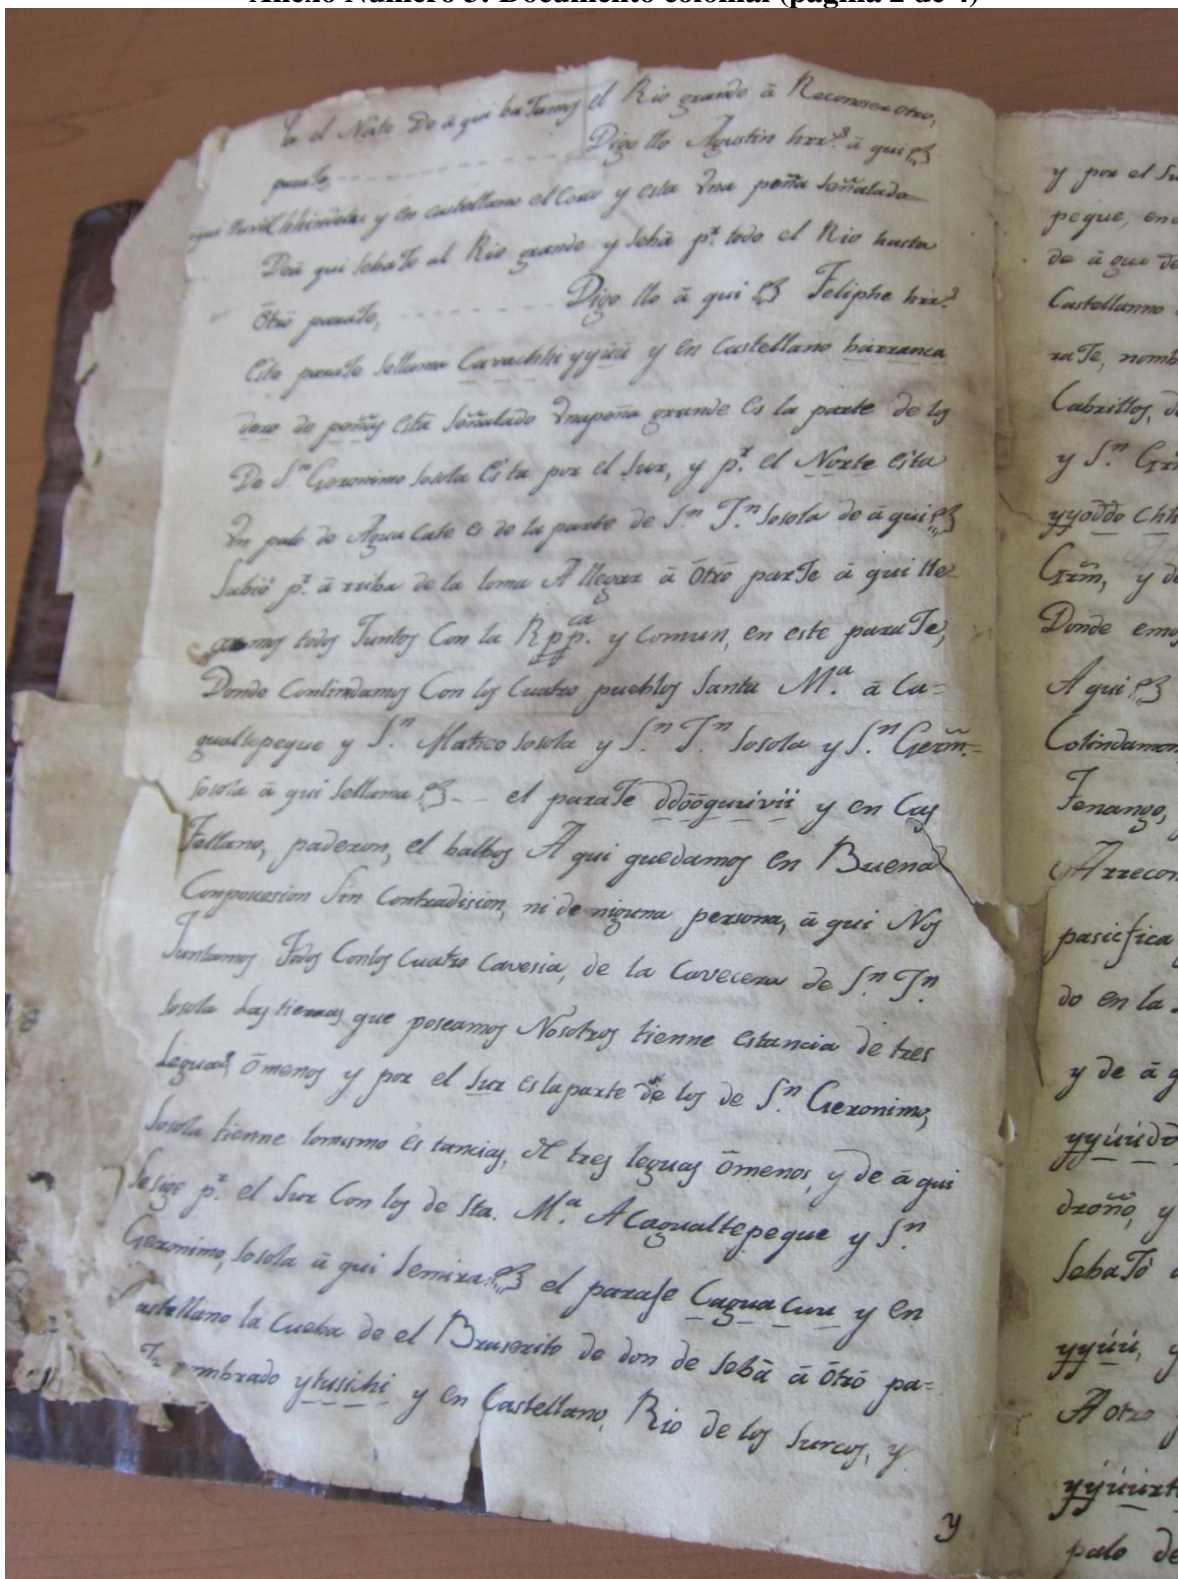 Anexo Número 3: Documento colonial (página 2 de 4)
el Norte De ã qui baJamos el Rio grande ã Reconoser otro,
paraJe Digo llo Agustin hrrz ã qui
y en castellano el y esta Vna peña señalado
Deã qui sebaJo al Rio grande y sebã pr. todo el Rio hasta
õtro paraJe, Digo llo ã qui Feliphe hrrz
Este paraJe sellama Cavachhi yyúú y en Castellano barranca
dero de peñas Está señalado Vnapeña grande Es la parte de los
De Sn Geronimo sosola Esta por el Sur, y pr. el Norte esta
Vn palo de Agua Cate es de la parte de Sn Jn sosola de ã qui
Subió pr. ã rriba de la loma A llegar ã õtro parJe ã qui lle
gamos todos Juntos Con la Rppca. y Comun, en este paraJe,
Donde Contindamos Con los Cuatro pueblos Santa Ma. ã Ca=
gualtepeque y Sn. Mateo sosola y Sn Jn sosola y Sn Germ.=
sosola ã qui sellama -- el paraJe ddõõgurivii y en Cas
Tellano, paderon, el balbos A qui quedamos en Buena
Composesion Sin Contradision, ni de niguna persona, ã qui Nos
Juntamos Todos Conlos Cuatro Cavesia, de la Cavecera de Sn Jn
sosola Las tierras que poseamos Nosotros tienne Estancia de tres
Leguas õmenos y por el Sur Es laparte de los de Sn Geronimo,
Sosola tienne lomismo Es tancias, de tres leguas õmenos, y de ã qui
Sesige pr. el Sur Con los de Sta. Ma. ACagualtepeque y Sn
Geronimo, Sosola ã qui Semira el paraJe Cagua Cuu y en
Castellano la Cueba de el Bruserito de don de Sebã ã õtro pa=
nombrado ytusichi y en Castellano, Rio de los Surcos, y
y
y por el Su
peque, en
de ã que de
Castellanno
raJe, nomb
Cabrittos, d
y Sn Gr
yyoddo Chh
Grm, y d
Donde emo
A qui
Colindamon
Tenango,
Arrecon
pasiefica
do en la
y de ã g
yyúúdo
droño, y
SebaJó
yyúú, y
A otro
yyúúxt
palo de